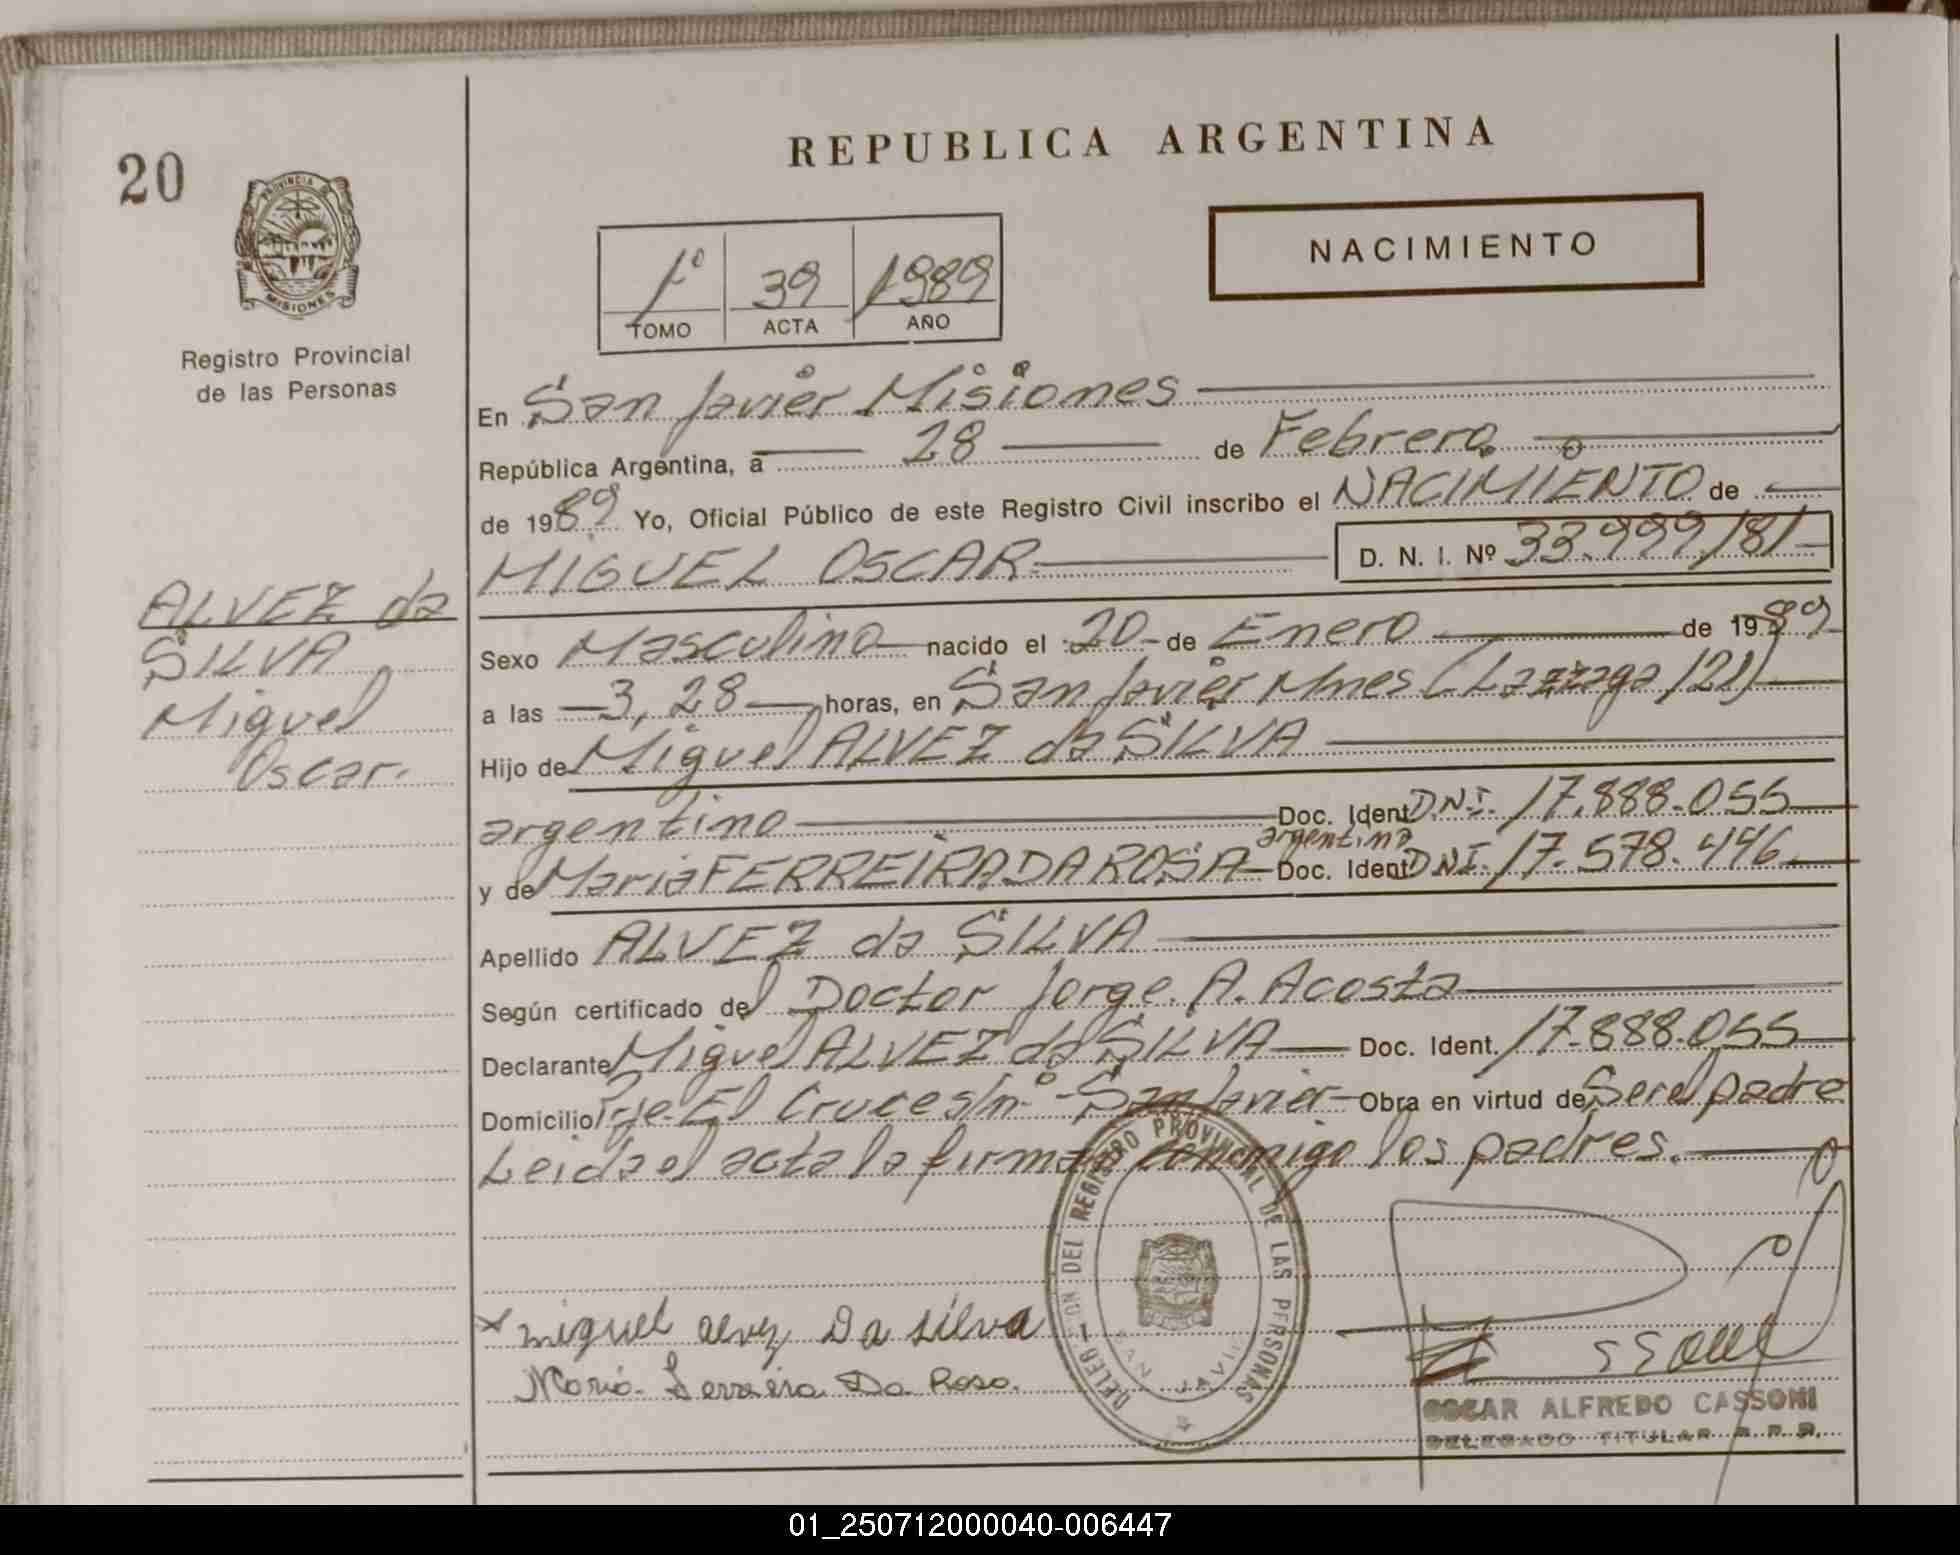 REPUBLICA ARGENTINA
20
PROVINCIA DE
MISIONES
Registro Provincial
de las Personas
NACIMIENTO
1º 39 1989
TOMO ACTA AÑO
En San Javier Misiones
República Argentina, a 28 de Febrero
de 1989 Yo, Oficial Público de este Registro Civil inscribo el NACIMIENTO de
MIGUEL OSCAR D. N. I. Nº 33.999.181
ALVEZ da
SILVA
Miguel
Oscar.
Sexo Masculino nacido el 20 de Enero de 1989
a las 3,28 horas, en San Javier Mnes (Lazzaga 121)
Hijo de Miguel ALVEZ da SILVA
argentino Doc. Ident D.N.I. 17.888.055
argentina
y de María FERREIRA DA ROSA Doc. Ident DNI. 17.578.446
Apellido ALVEZ da SILVA
Según certificado del Doctor Jorge. A. Acosta
Declarante Miguel ALVEZ da SILVA Doc. Ident. 17.888.055
Domicilio Pje. El Cruce s/nº - San Javier - Obra en virtud de Ser el padre
Leida el acta la firman conmigo los padres.
DELEGACION DEL REGISTRO PROVINCIAL DE LAS PERSONAS
SAN JAVIER
miguel alvez Da silva
Maria Ferreira Da Rosa.
OSCAR ALFREDO CASSONI
DELEGADO TITULAR R. P. P.
01_250712000040-006447